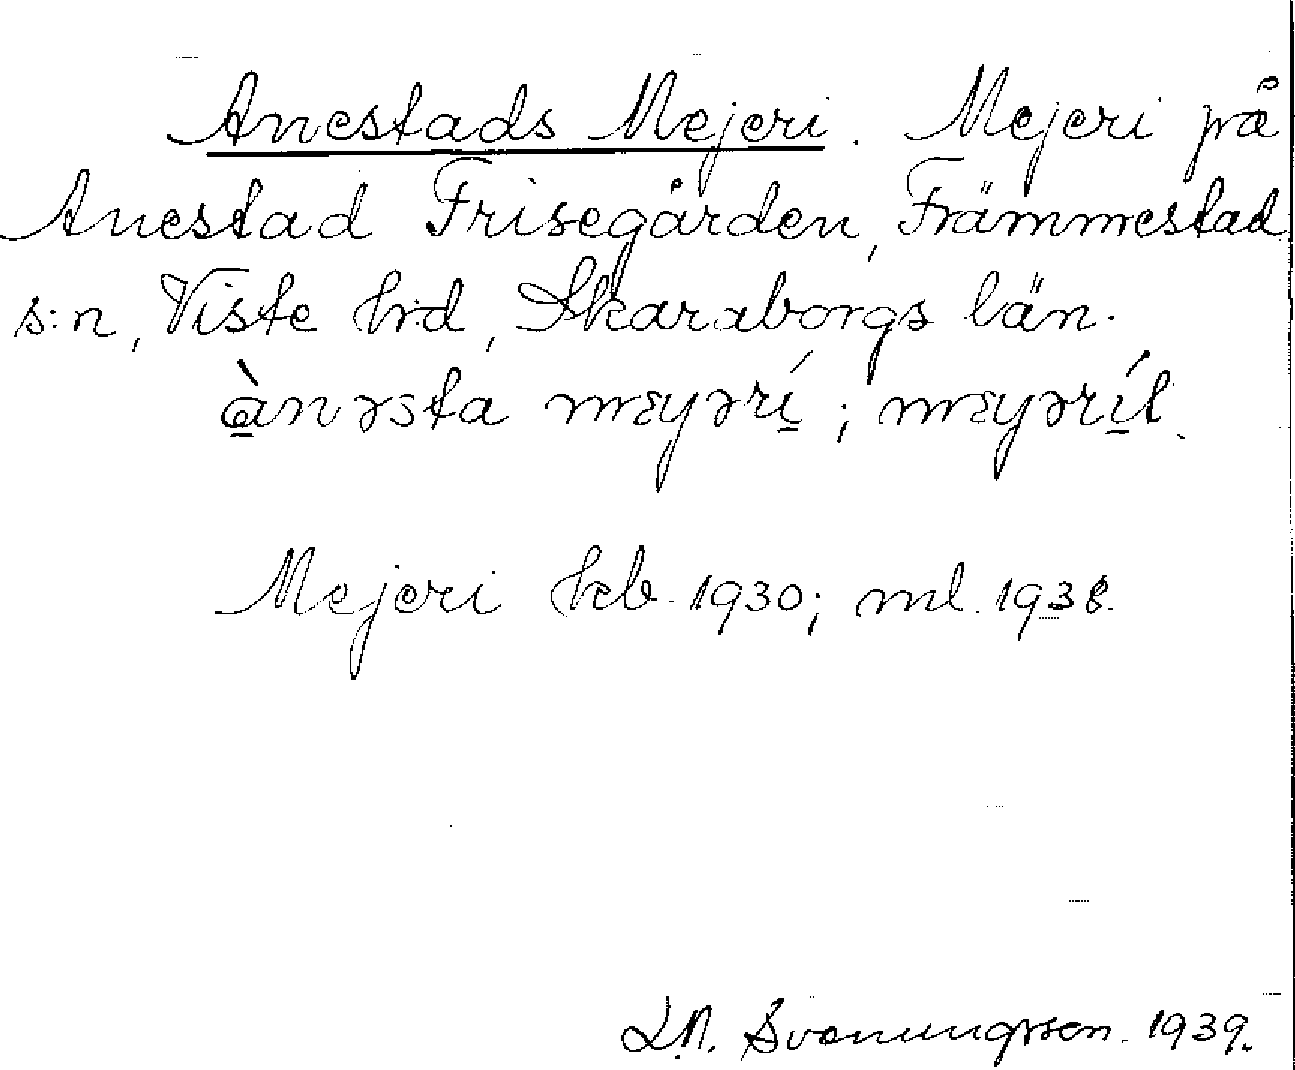 Anestads Mejeri. Mejeri på
Anestad Frisegården, Främmestad
s:n, Viste h:d, Skaraborgs län.
ànəsta mɛyərí; mɛyərít.
Mejeri kcb. 1930; ml. 1938.
D.N. Svanungsson. 1939.